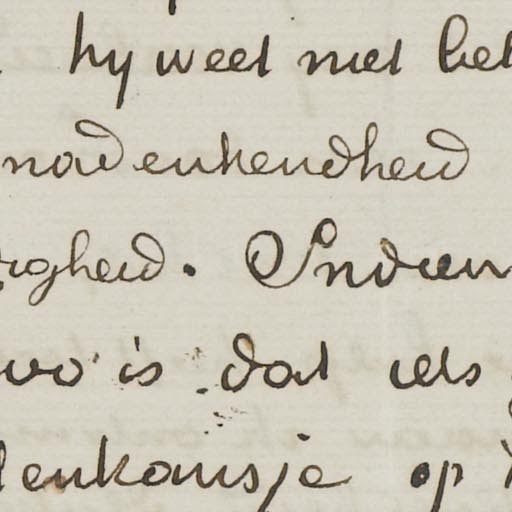 hy weet niet bet
nadenkendheid
igheid. Indien
zoo is dat iets
enkansje op